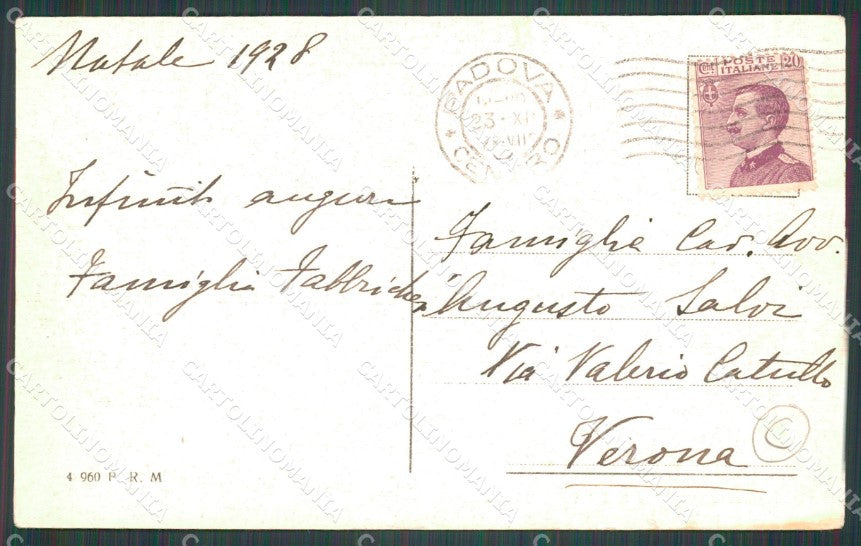 Natale 1928
PADOVA
23 XII
CENTRO
Cent. 20
POSTE
ITALIANE
Infiniti auguri
Famiglia Fabbrichesi
Famiglia Cav. Avv.
Augusto Salvi
Via Valerio Catullo
Verona
C
4 960 P. R. M
CARTOLINOMANIA